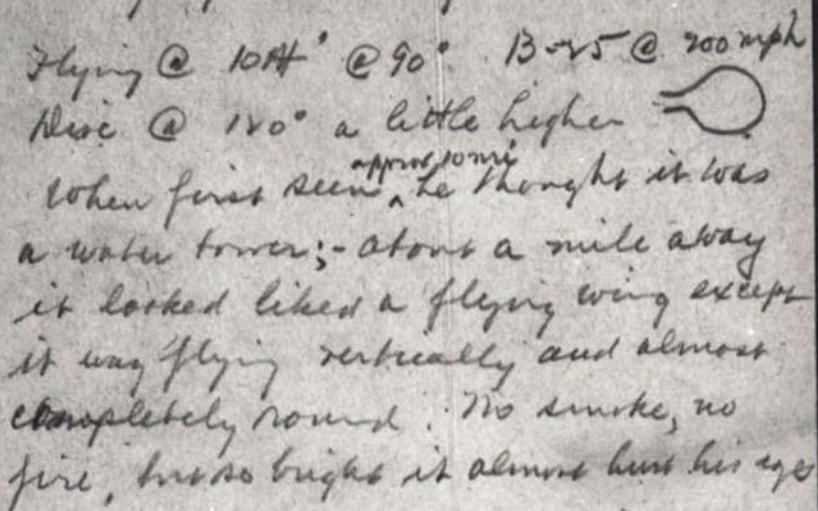 Flying @ 10 @ 90° B-25 @ 200 mph
Disc @ 120° a little higher
approx 10 mi
When first seen ^ he thought it was
a water tower;- about a mile away
it looked liked a flying wing except
it was flying vertically and almost
completely round. No smoke, no
fire, but so bright it almost hurt his eyes